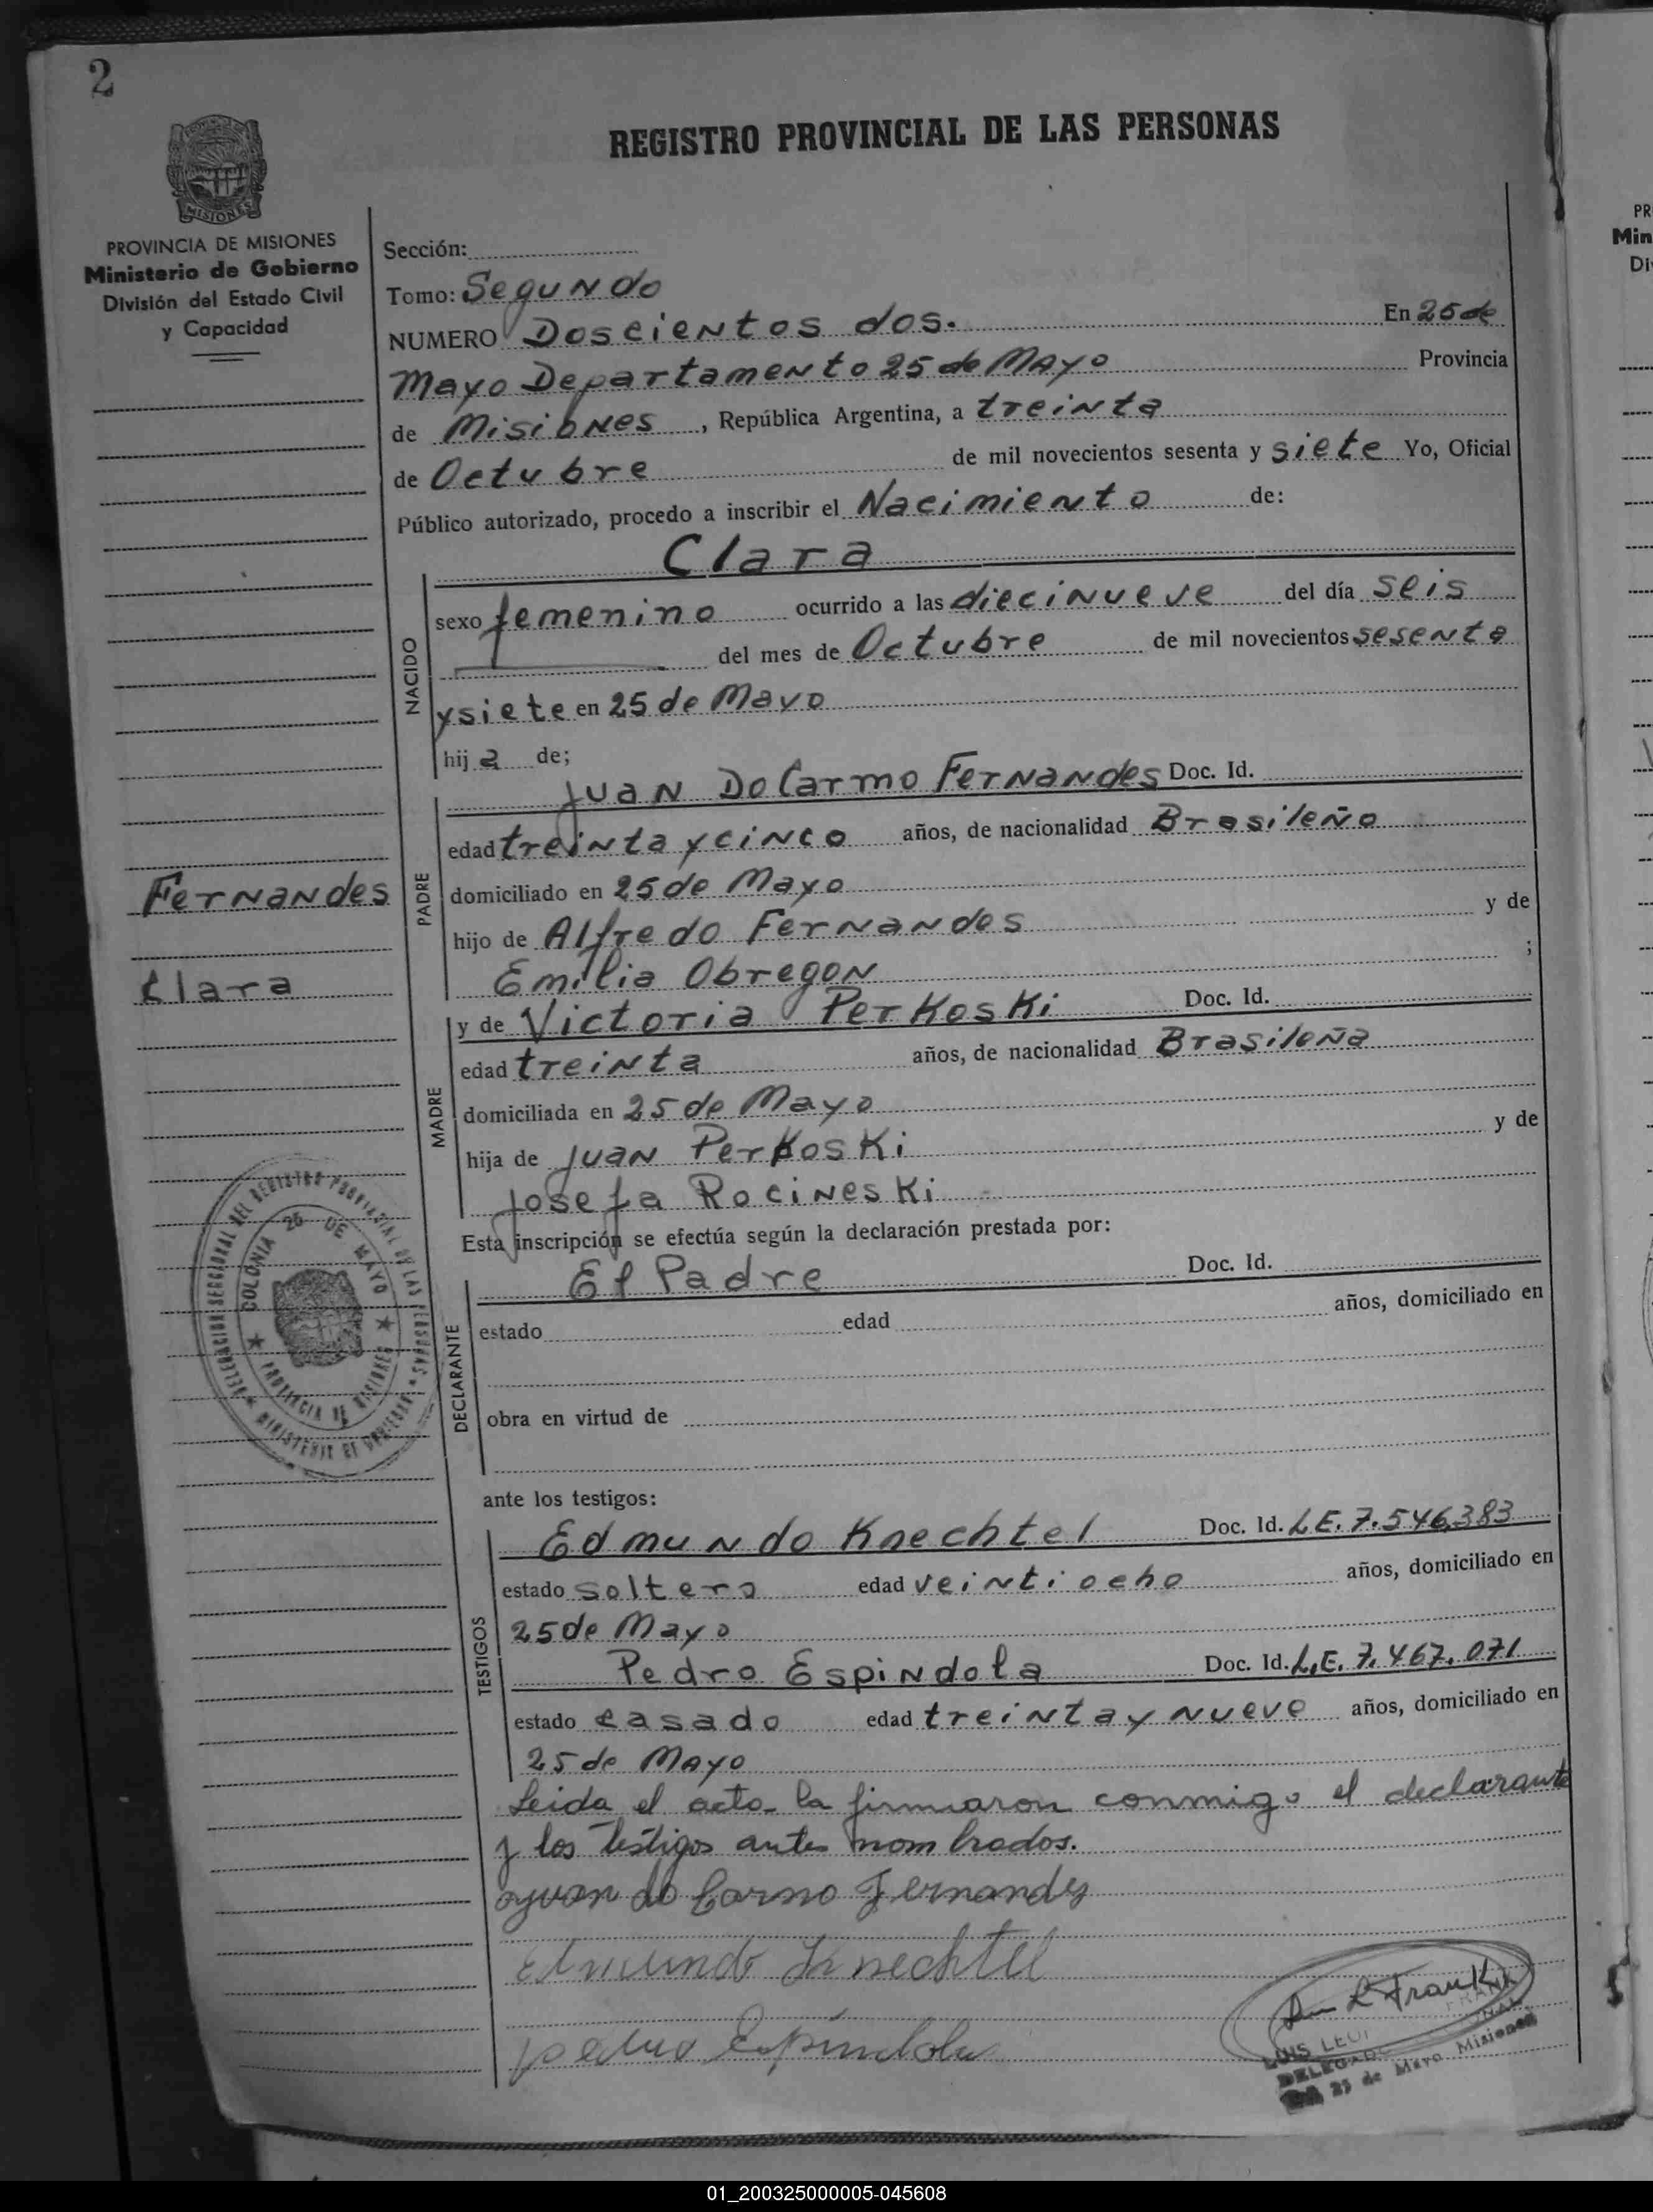 2
REGISTRO PROVINCIAL DE LAS PERSONAS
MISIONES
PROVINCIA DE MISIONES
Ministerio de Gobierno
División del Estado Civil
y Capacidad
Sección:
Tomo: Segundo
NUMERO Doscientos dos. En 25 de
Mayo Departamento 25 de Mayo Provincia
de Misiones, República Argentina, a treinta
de Octubre de mil novecientos sesenta y siete Yo, Oficial
Público autorizado, procedo a inscribir el Nacimiento de:
Clara
NACIDO
sexo femenino ocurrido a las diecinueve del día seis
del mes de Octubre de mil novecientos sesenta
y siete en 25 de Mayo
hija de;
PADRE
Juan Do Carmo Fernandes Doc. Id.
edad treinta y cinco años, de nacionalidad Brasileño
domiciliado en 25 de Mayo
Fernandes
hijo de Alfredo Fernandes y de
Emilia Obregon ;
Clara
MADRE
y de Victoria Perkoski Doc. Id.
edad treinta años, de nacionalidad Brasileña
domiciliada en 25 de Mayo
hija de Juan Perkoski y de
Josefa Rocineski
Esta inscripción se efectúa según la declaración prestada por:
DECLARANTE
El Padre Doc. Id.
estado edad años, domiciliado en
obra en virtud de
DELEGACION SECCIONAL DEL REGISTRO PROVINCIAL DE LAS PERSONAS
MINISTERIO DE GOBIERNO
COLONIA 25 DE MAYO
PROVINCIA DE MISIONES
ante los testigos:
TESTIGOS
Edmundo Knechtel Doc. Id. L.E. 7.546.383
estado soltero edad veintiocho años, domiciliado en
25 de Mayo
Pedro Espindola Doc. Id. L.E. 7.467.071
estado casado edad treinta y nueve años, domiciliado en
25 de Mayo
Leida el acta la firmaron conmigo el declarante
y los testigos antes nombrados.
Juan do Carmo Fernandes
Edmundo Knechtel
Pedro Espindola
L Frank
LUIS LEOP FRANK
DELEGADO
25 de Mayo Misiones
PR
Min
Di
01_200325000005-045608